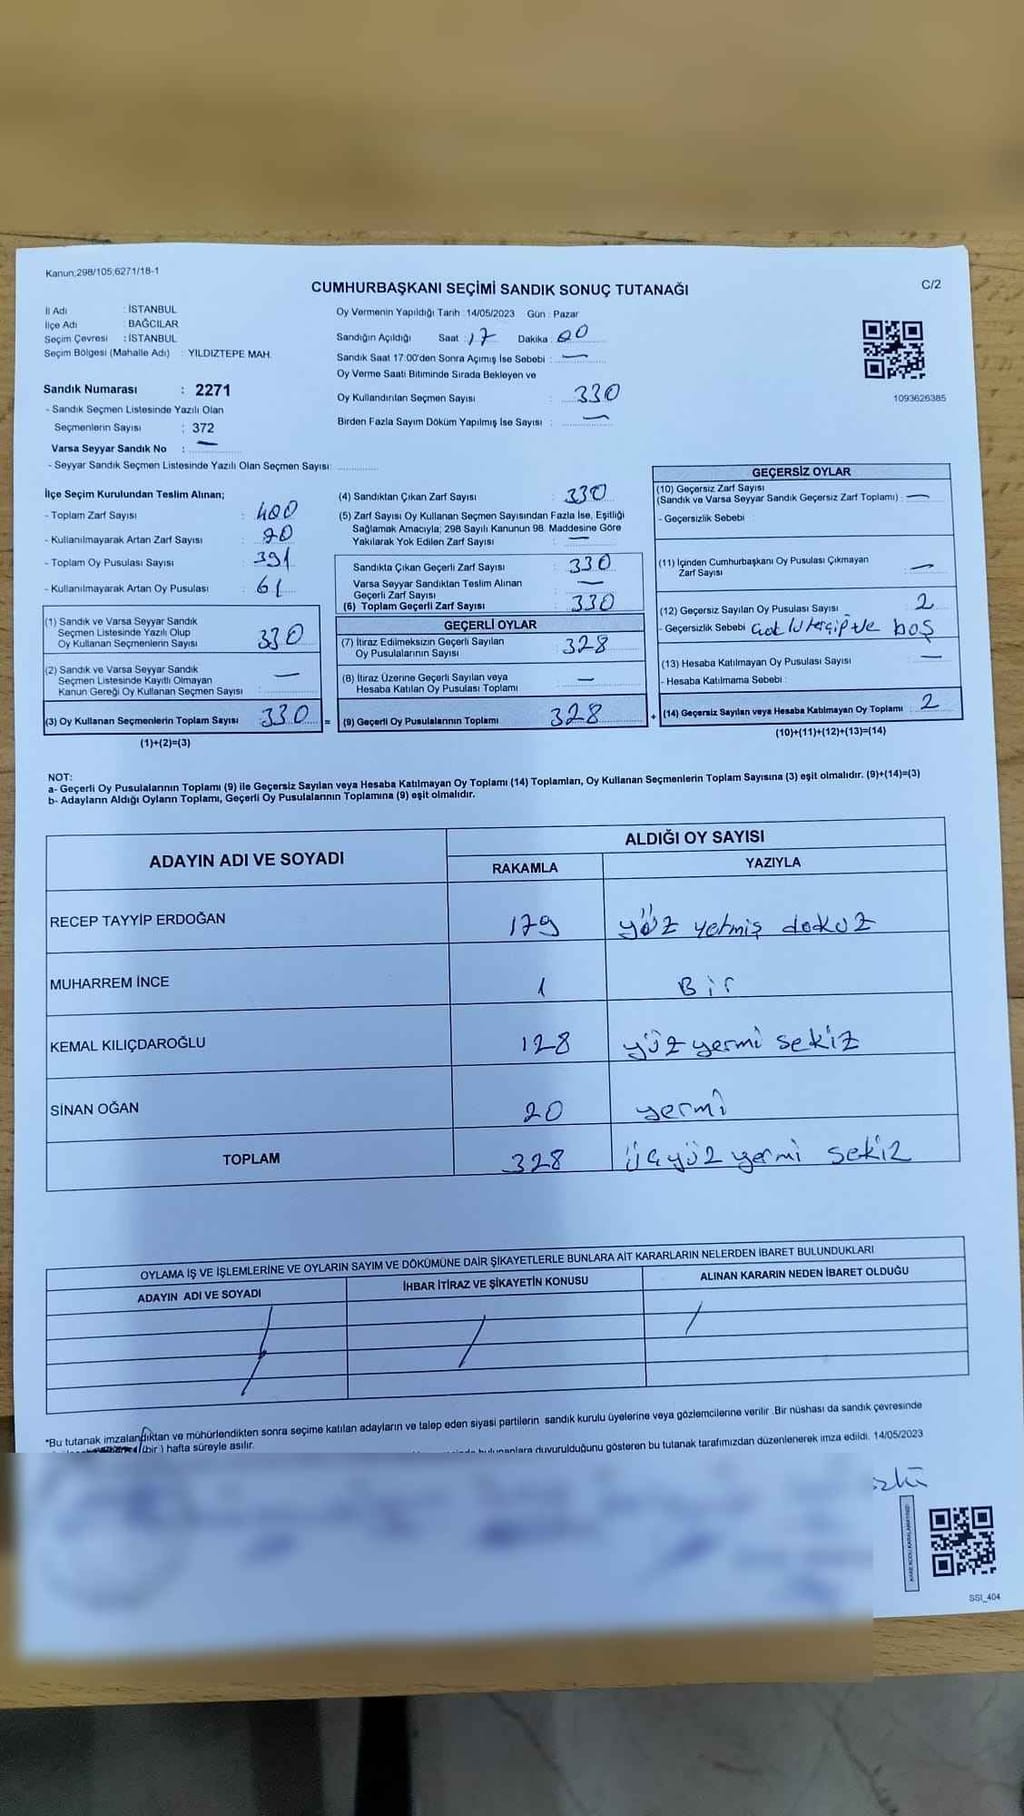 Kanun;298/105,6271/18-1
CUMHURBAŞKANI SEÇİMİ SANDIK SONUÇ TUTANAĞI
C/2
İl Adı : İSTANBUL
İlçe Adı : BAĞCILAR
Seçim Çevresi : İSTANBUL
Seçim Bölgesi (Mahalle Adı) : YILDIZTEPE MAH.
Sandık Numarası : 2271
- Sandık Seçmen Listesinde Yazılı Olan
Seçmenlerin Sayısı : 372
Varsa Seyyar Sandık No : —
- Seyyar Sandık Seçmen Listesinde Yazılı Olan Seçmen Sayısı:
Oy Vermenin Yapıldığı Tarih :14/05/2023 Gün : Pazar
Sandığın Açıldığı Saat : 17 Dakika : 00
Sandık Saat 17:00'den Sonra Açımış İse Sebebi : —
Oy Verme Saati Bitiminde Sırada Bekleyen ve
Oy Kullandırılan Seçmen Sayısı : 330
Birden Fazla Sayım Döküm Yapılmış İse Sayısı : —
1093626385
İlçe Seçim Kurulundan Teslim Alınan;
- Toplam Zarf Sayısı : 400
- Kullanılmayarak Artan Zarf Sayısı : 70
- Toplam Oy Pusulası Sayısı : 391
- Kullanılmayarak Artan Oy Pusulası : 61
(1) Sandık ve Varsa Seyyar Sandık
Seçmen Listesinde Yazılı Olup
Oy Kullanan Seçmenlerin Sayısı : 330
(2) Sandık ve Varsa Seyyar Sandık
Seçmen Listesinde Kayıtlı Olmayan
Kanun Gereği Oy Kullanan Seçmen Sayısı : —
(3) Oy Kullanan Seçmenlerin Toplam Sayısı : 330 =
(1)+(2)=(3)
(4) Sandıktan Çıkan Zarf Sayısı : 330
(5) Zarf Sayısı Oy Kullanan Seçmen Sayısından Fazla İse, Eşitliği
Sağlamak Amacıyla; 298 Sayılı Kanunun 98. Maddesine Göre
Yakılarak Yok Edilen Zarf Sayısı : —
Sandıkta Çıkan Geçerli Zarf Sayısı : 330
Varsa Seyyar Sandıktan Teslim Alınan
Geçerli Zarf Sayısı : —
(6) Toplam Geçerli Zarf Sayısı : 330
GEÇERLİ OYLAR
(7) İtiraz Edilmeksizin Geçerli Sayılan
Oy Pusulalarının Sayısı : 328
(8) İtiraz Üzerine Geçerli Sayılan veya
Hesaba Katılan Oy Pusulası Toplamı : —
(9) Geçerli Oy Pusulalarının Toplamı : 328 +
GEÇERSİZ OYLAR
(10) Geçersiz Zarf Sayısı
(Sandık ve Varsa Seyyar Sandık Geçersiz Zarf Toplamı) : —
- Geçersizlik Sebebi
(11) İçinden Cumhurbaşkanı Oy Pusulası Çıkmayan
Zarf Sayısı : —
(12) Geçersiz Sayılan Oy Pusulası Sayısı : 2
- Geçersizlik Sebebi ve boş
(13) Hesaba Katılmayan Oy Pusulası Sayısı : —
- Hesaba Katılmama Sebebi :
(14) Geçersiz Sayılan veya Hesaba Katılmayan Oy Toplamı : 2
(10)+(11)+(12)+(13)=(14)
NOT:
a- Geçerli Oy Pusulalarının Toplamı (9) ile Geçersiz Sayılan veya Hesaba Katılmayan Oy Toplamı (14) Toplamları, Oy Kullanan Seçmenlerin Toplam Sayısına (3) eşit olmalıdır. (9)+(14)=(3)
b- Adayların Aldığı Oyların Toplamı, Geçerli Oy Pusulalarının Toplamına (9) eşit olmalıdır.
ADAYIN ADI VE SOYADI
ALDIĞI OY SAYISI
RAKAMLA YAZIYLA
RECEP TAYYİP ERDOĞAN 179 yüz yetmiş dokuz
MUHARREM İNCE 1 Bir
KEMAL KILIÇDAROĞLU 128 yüz yermi sekiz
SİNAN OĞAN 20 yermi
TOPLAM 328 üçyüz yermi sekiz
OYLAMA İŞ VE İŞLEMLERİNE VE OYLARIN SAYIM VE DÖKÜMÜNE DAİR ŞİKAYETLERLE BUNLARA AİT KARARLARIN NELERDEN İBARET BULUNDUKLARI
ADAYIN ADI VE SOYADI İHBAR İTİRAZ VE ŞİKAYETİN KONUSU ALINAN KARARIN NEDEN İBARET OLDUĞU
*Bu tutanak imzalandıktan ve mühürlendikten sonra seçime katılan adayların ve talep eden siyasi partilerin sandık kurulu üyelerine veya gözlemcilerine verilir .Bir nüshası da sandık çevresinde
(bir ) hafta süreyle asılır.
bulunanlara duyurulduğunu gösteren bu tutanak tarafımızdan düzenlenerek imza edildi. 14/05/2023
SSI_404